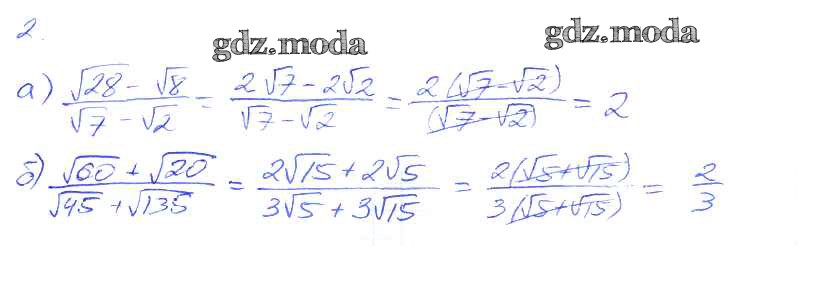 2.
gdz.moda gdz.moda
а) (√28 - √8)/(√7 - √2) = (2√7 - 2√2)/(√7 - √2) = 2(√7 - √2)/(√7 - √2) = 2
б) (√60 + √20)/(√45 + √135) = (2√15 + 2√5)/(3√5 + 3√15) = 2(√5 + √15)/3(√5 + √15) = 2/3